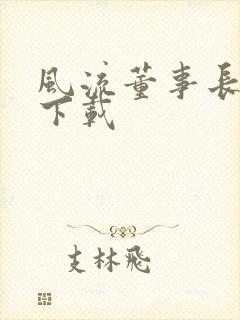 風流董事長
下載
支林飛